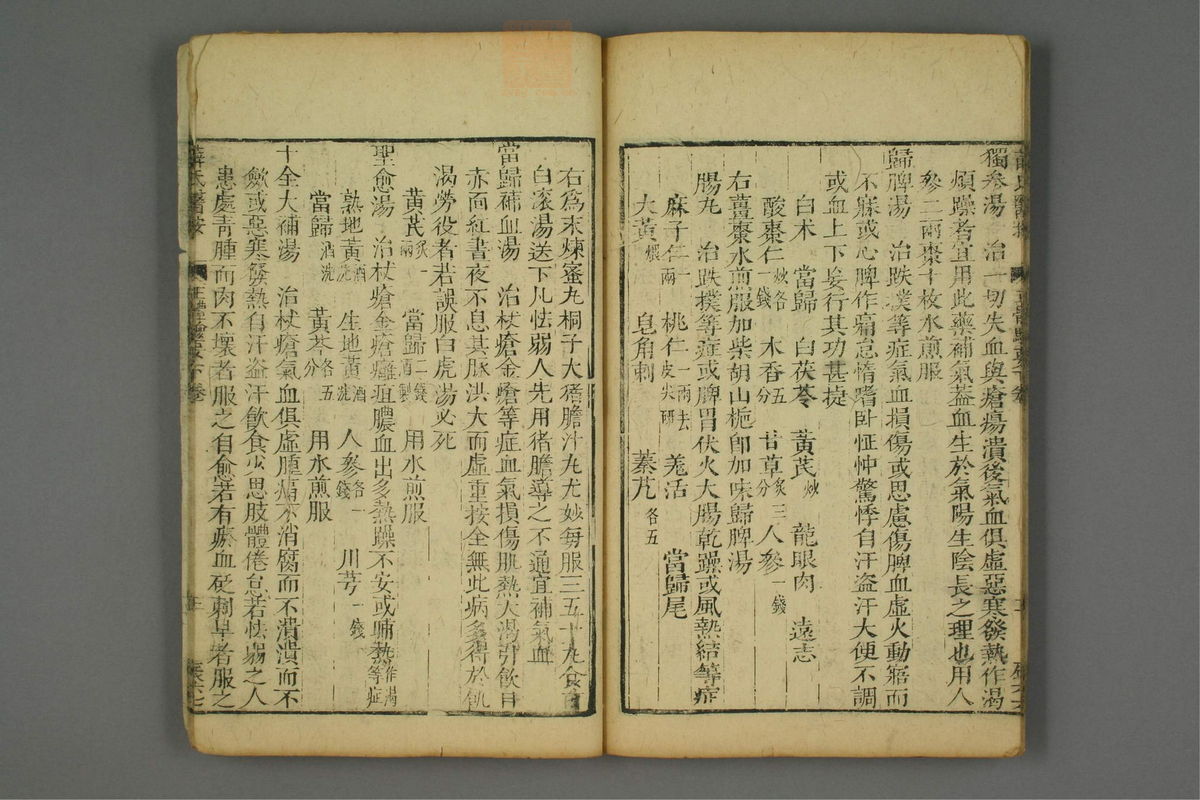 獨參湯 治一切失血與瘡瘍潰後氣血俱虛惡寒發熱作渴
煩躁者宜用此藥補氣蓋血生於氣陽生陰長之理也用人
參二兩棗十枚水煎服
歸脾湯 治跌撲等症氣血損傷或思慮傷脾血虛火動寤而
不寐或心脾作痛怠惰嗜卧怔忡驚悸自汗盜汗大便不調
或血上下妄行其功甚捷
白朮 當歸 白茯苓 黃芪炒 龍眼肉 遠志
酸棗仁炒各一錢 木香五分 甘草炙三分 人參一錢
右薑棗水煎服加柴胡山梔卽加味歸脾湯
腸丸 治跌撲等症或脾胃伏火大腸乾躁或風熱結等症
麻子仁一兩 桃仁一兩去皮尖研 羌活 當歸尾
大黃煨 皂角刺 秦艽各五
右爲末煉蜜丸桐子大猪膽汁丸尤妙每服三五十丸食前
白滾湯送下凡怯弱人先用猪膽導之不通宜補氣血
當歸補血湯 治杖瘡金瘡等症血氣損傷肌熱大渴引飲目
赤面紅晝夜不息其脉洪大而虛重按全無此病多得於飢
渴勞役者若誤服白虎湯必死
黃芪炙一兩 當歸二錢酒製 用水煎服
聖愈湯 治杖瘡金瘡癰疽膿血出多熱躁不安或晡熱作渴等症
熟地黃酒洗 生地黃酒洗 人參各一錢 川芎一錢
當歸酒洗 黃芩各五分 用水煎服
十全大補湯 治杖瘡氣血俱虛腫痛不消腐而不潰潰而不
歛或惡寒發熱自汗盜汗飲食少思肢體倦怠若怯弱之人
患處青腫而肉不壞者服之自愈若有瘀血砭刺早者服之
薛氏醫按 正體類要下卷